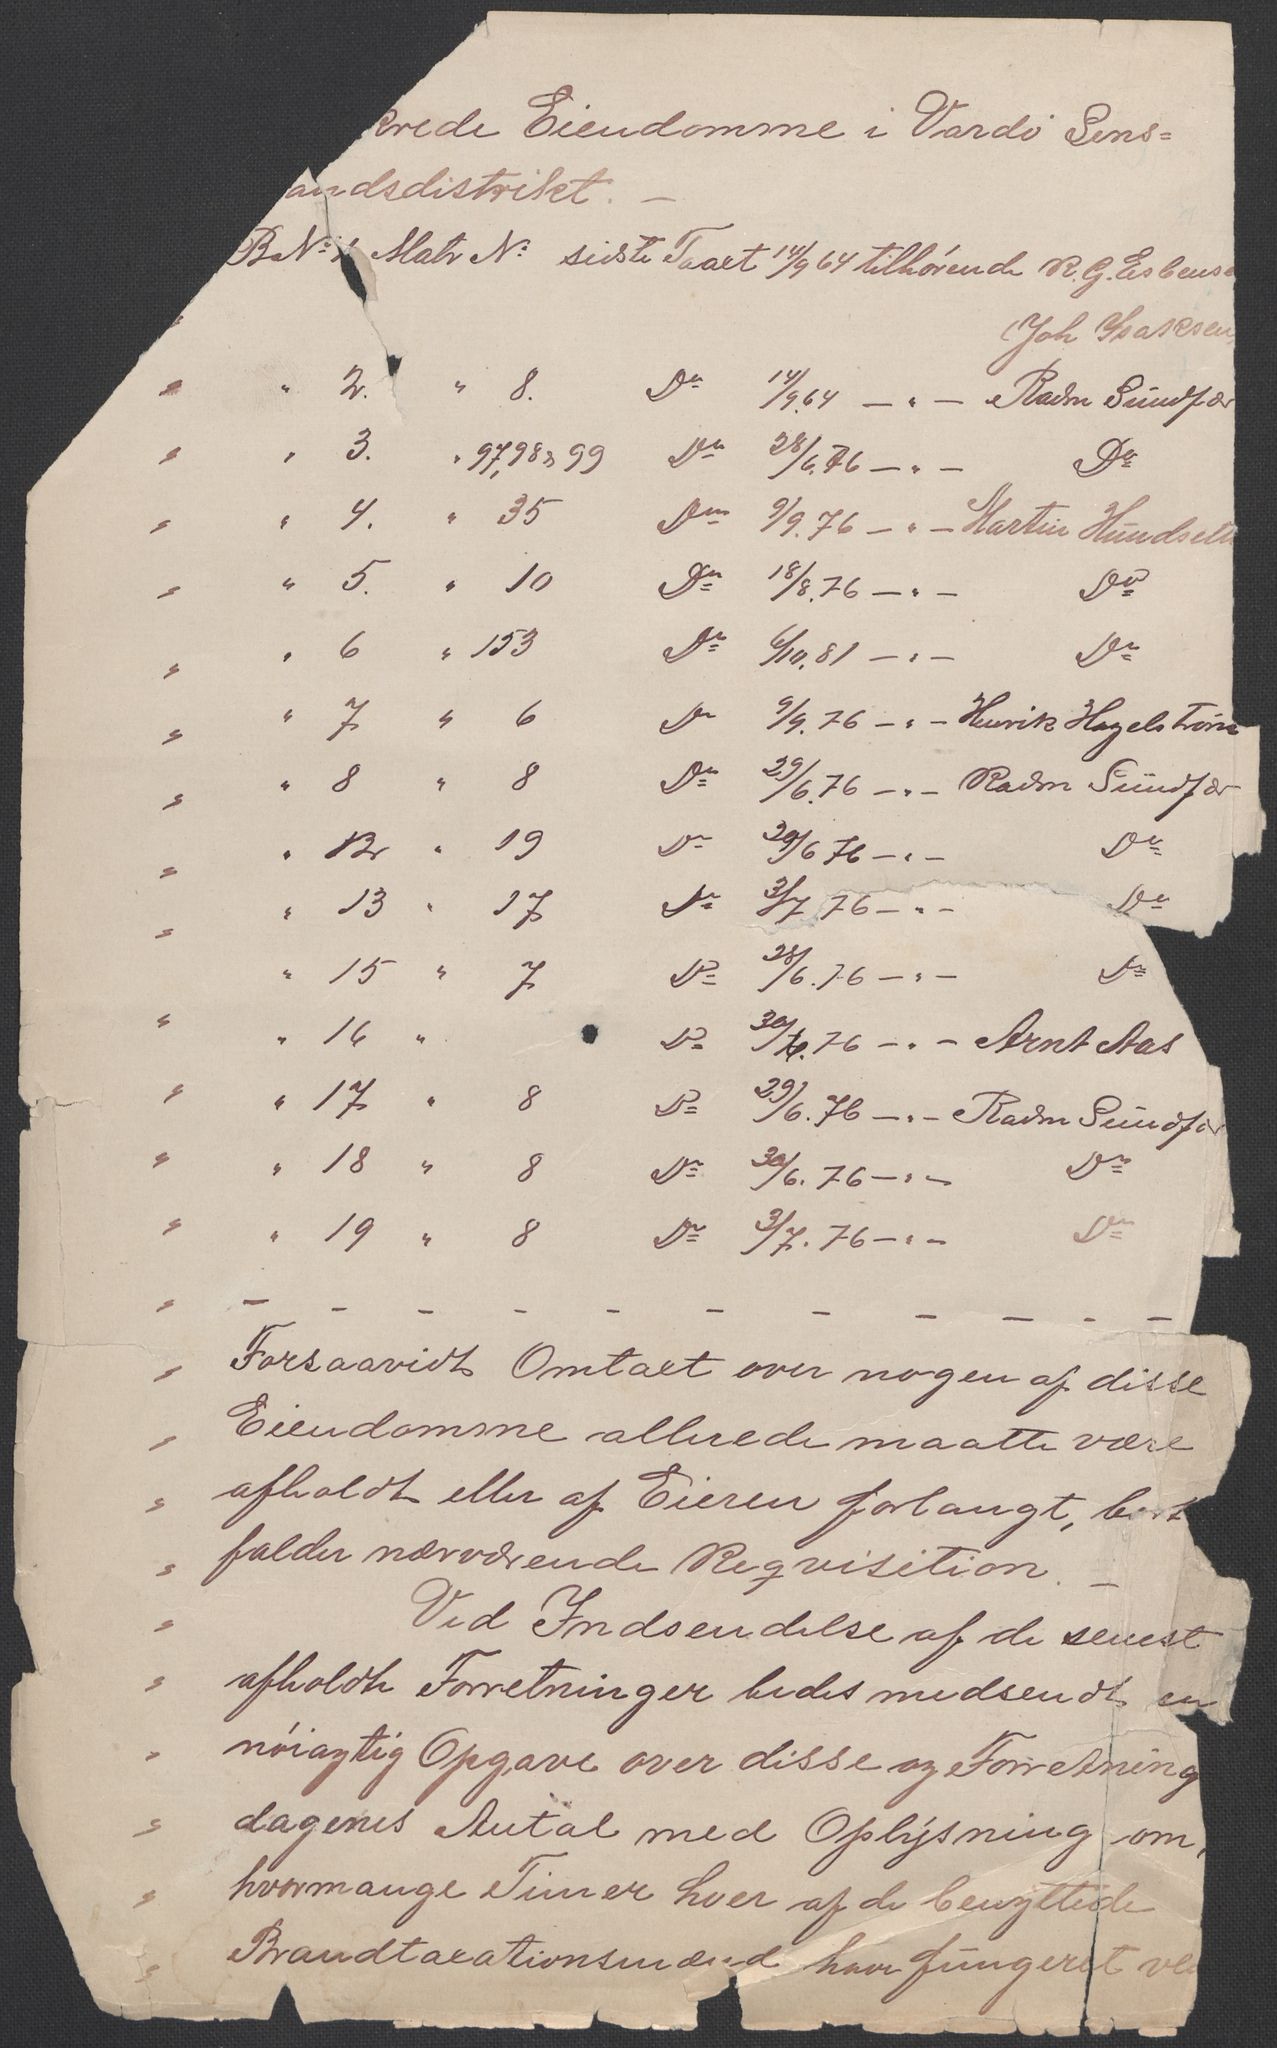 krede Eiendomme i Vardö Lens=
andsdistrikt. —
B. No 1 Matr No sidste Taxt 14/9 64 tilhørende R. G. Esbens
" (Joh Isaksen
" " 2. " 8. Do 14/9.64 — " — Radm Sundfær
" " 3. " 97,98 & 99 Do 28/6.76 — " — Do
" " 4. " 35 Do 9/9.76 — " — Martin Hundseth
" " 5. " 10 Do 18/8.76 — " — Do
" " 6 " 153 Do 6/10.81 — " — Do
" " 7 " 6 Do 9/9.76 — " — Henrik Hagelstrøm
" " 8 " 8 Do 29/6.76 — " — Radm Sundfær
" " 12 " 19 Do 30/6 76 — " — Do
" " 13 " 17 Do 3/7.76 — " — Do
" " 15 " 7 Do 28/6.76 — " — Do
" " 16 " Do 30/6.76 — " — Arnt Aas
" " 17 " 8 Do 29/6.76 — " — Radm Sundfær
" " 18 " 8 Do 30/6.76 — " — Do
" " 19 " 8 Do 3/7.76 — " — Do
" — — — — — — — — — — —
" Forsaavidt Omtaxt over nogen af disse
" Eiendomme allerede maatte være
" afholdt eller af Eieren forlangt, bort
" falder nærværende Reqvisition. —
" Ved Indsendelse af de senest
" afholdte Forretninger bedes medsendt en
" nøiagtig Opgave over disse og Forretning
" dagenes Antal med Oplysning om,
" hvormange Timer hver af de benyttede
" Brandtaxationsmænd have fungeret ved